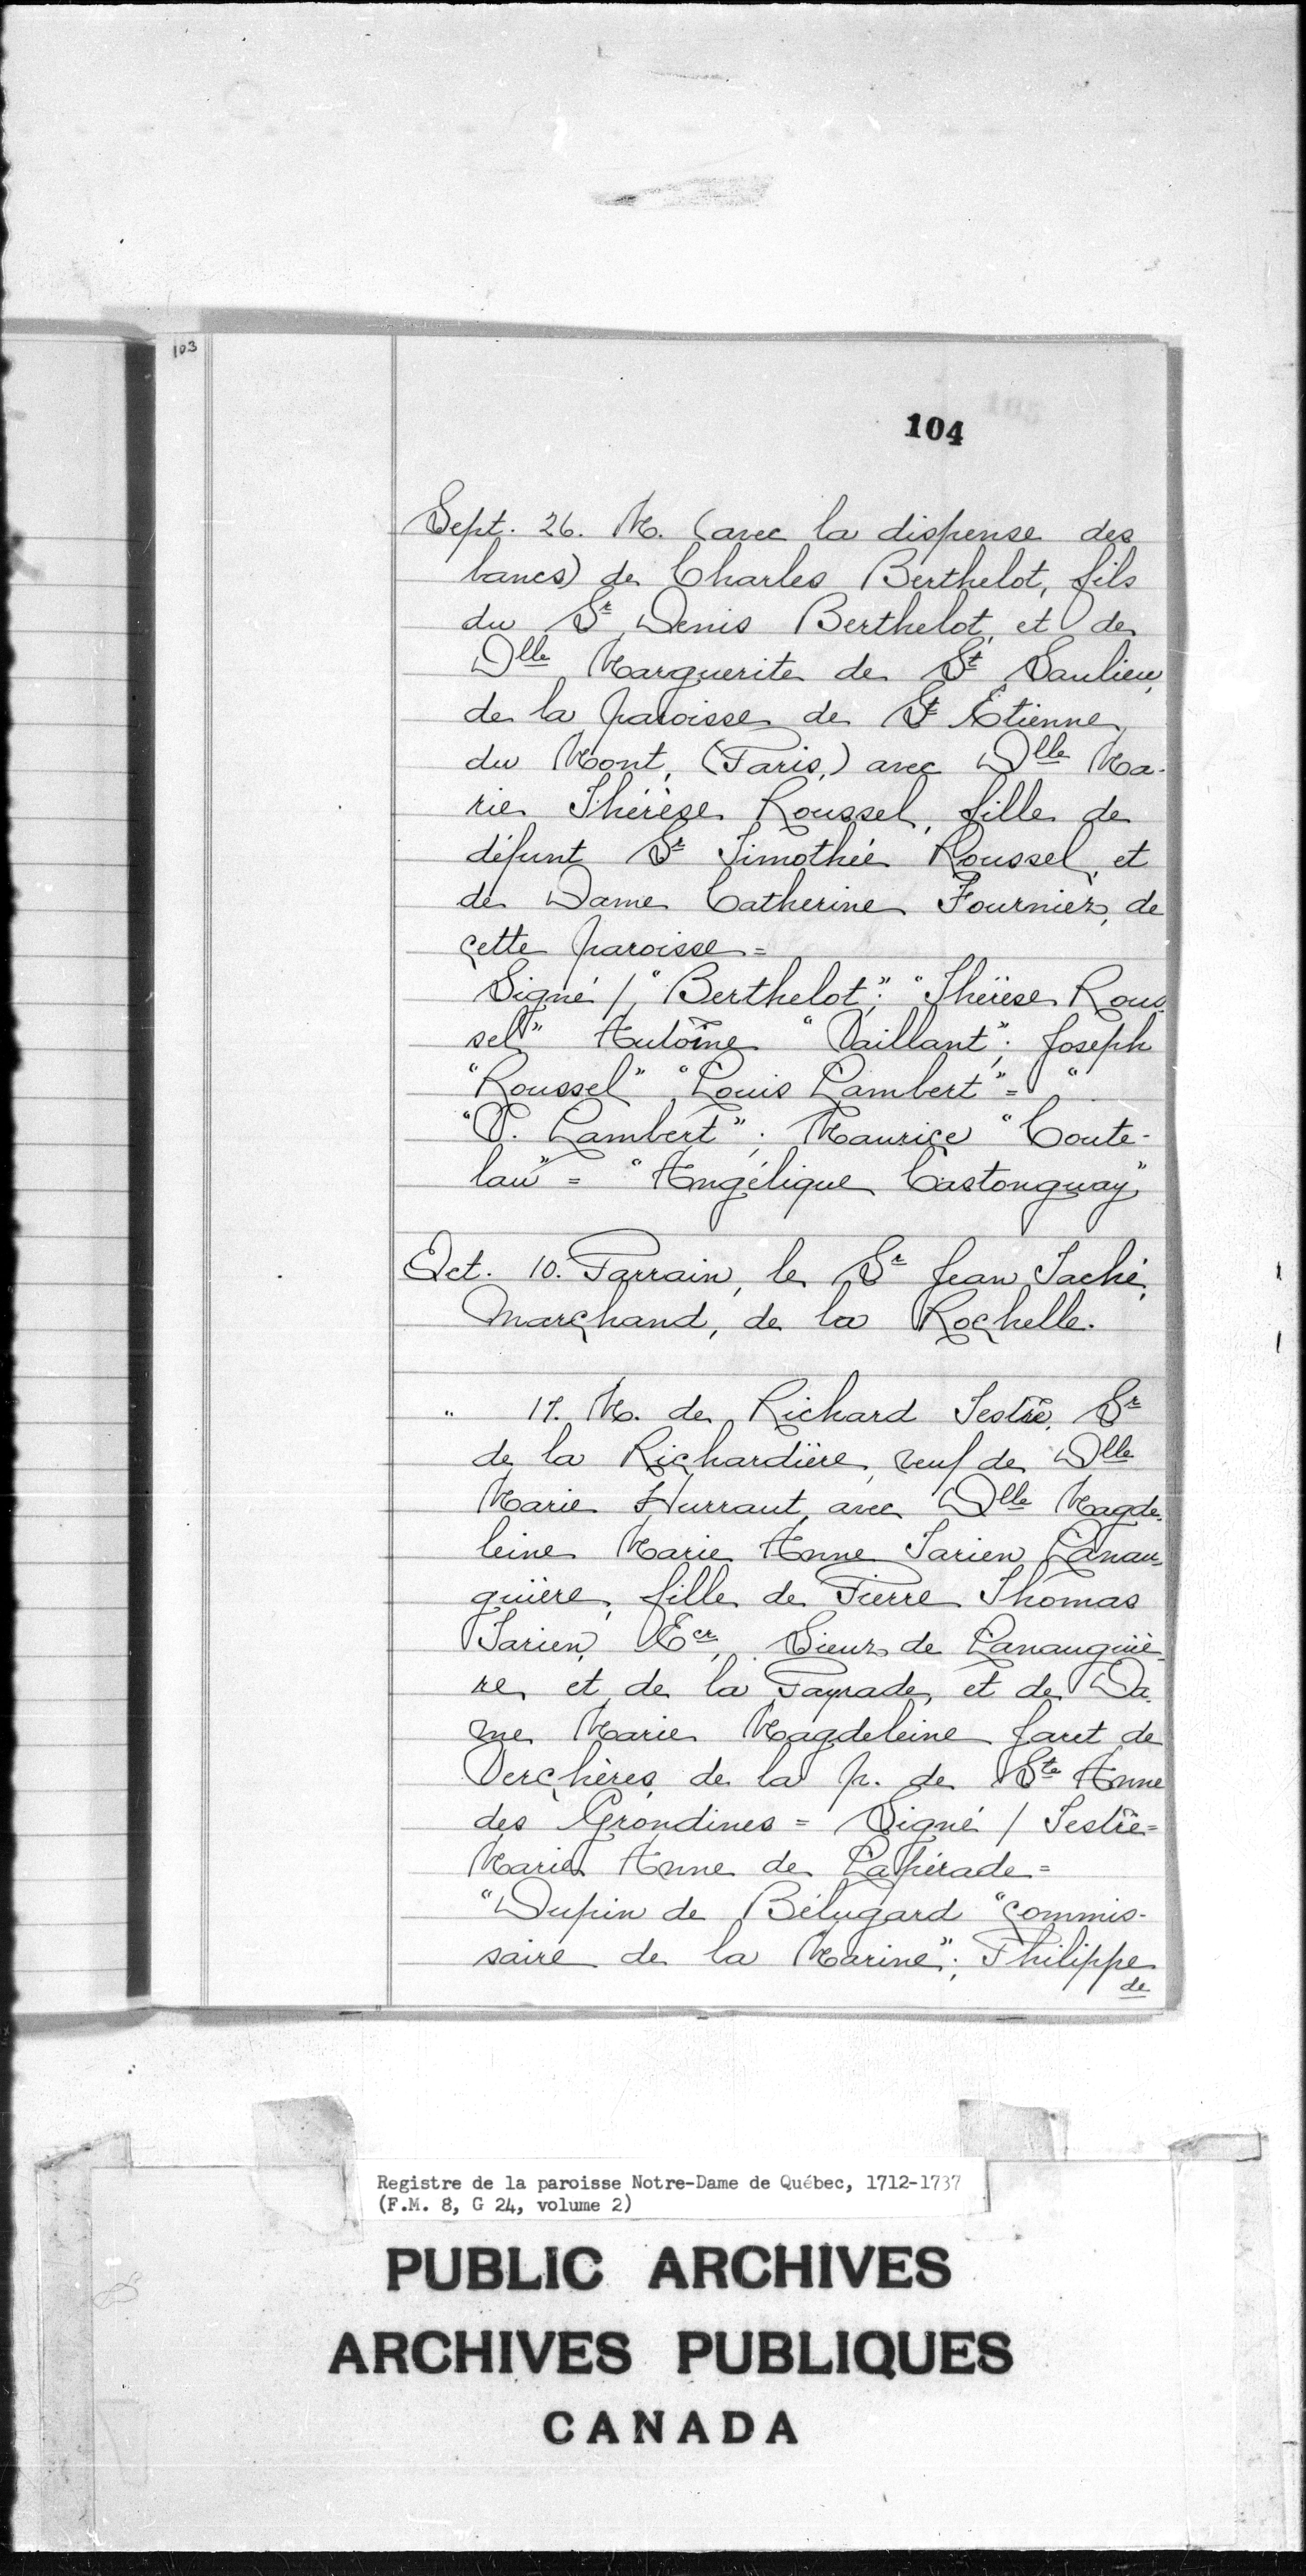 103
104
Sept. 26. M. (avec la dispense des
bancs) de Charles Berthelot, fils
du Sr Denis Berthelot, et de
Dlle Marguerite de St Saulieu,
de la paroisse de St Etienne
du Mont, (Paris,) avec Dlle Ma-
rie Thérèse Roussel, fille de
défunt Sr Timothée Roussel, et
de Dame Catherine Fournier, de
cette paroisse =
Signé / "Berthelot"; "Thérèse Rous-
sel" Antoine "Vaillant"; Joseph
"Roussel" "Louis Lambert" = "
"P. Lambert"; Maurice "Coute-
lau" = "Angélique Castonguay"
Oct. 10. Parrain, le Sr Jean Taché,
Marchand, de la Rochelle.
" 17. M. de Richard Testu, Sr
de la Richardière, veuf de Dlle
Marie Hurraut, avec Dlle Magde-
leine Marie Anne Tarieu Lanau-
guière, fille de Pierre Thomas
Tarieu, Ecr, Sieur de Lanauguiè-
re, et de la Payrade, et de Da-
me Marie Magdeleine Jaret de
Verchères, de la p. de Ste Anne
des Grondines = Signé / Testu =
Marie Anne de Lapérade =
"Dupin de Bélugard "commis-
saire de la Marine"; Philippe
de
Registre de la paroisse Notre-Dame de Québec, 1712-1737
(F.M. 8, G 24, volume 2)
PUBLIC ARCHIVES
ARCHIVES PUBLIQUES
CANADA